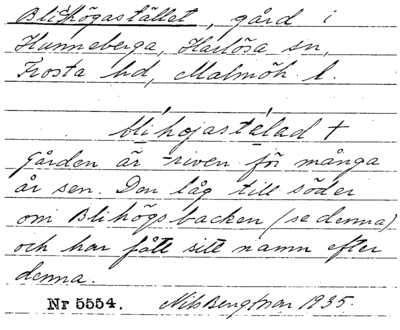 Blihögastället, gård i
Hunneberga, Harlösa sn,
Frosta hd, Malmöh. l.
blihojastalad +
Gården är riven för många
år sen. Den låg till söder
om Blihögsbacken (se denna)
och har fått sitt namn efter
denna.
Nr 5554. Nils Bengtsson 1935.